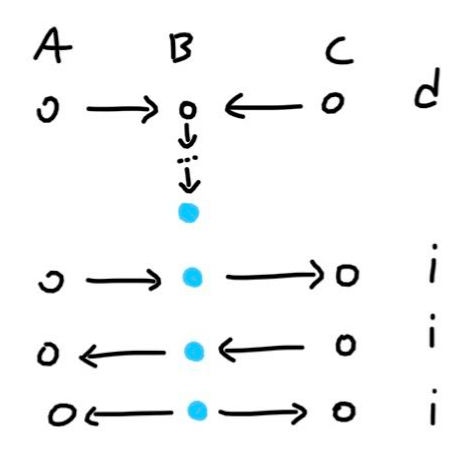 A B C
d
i
i
i